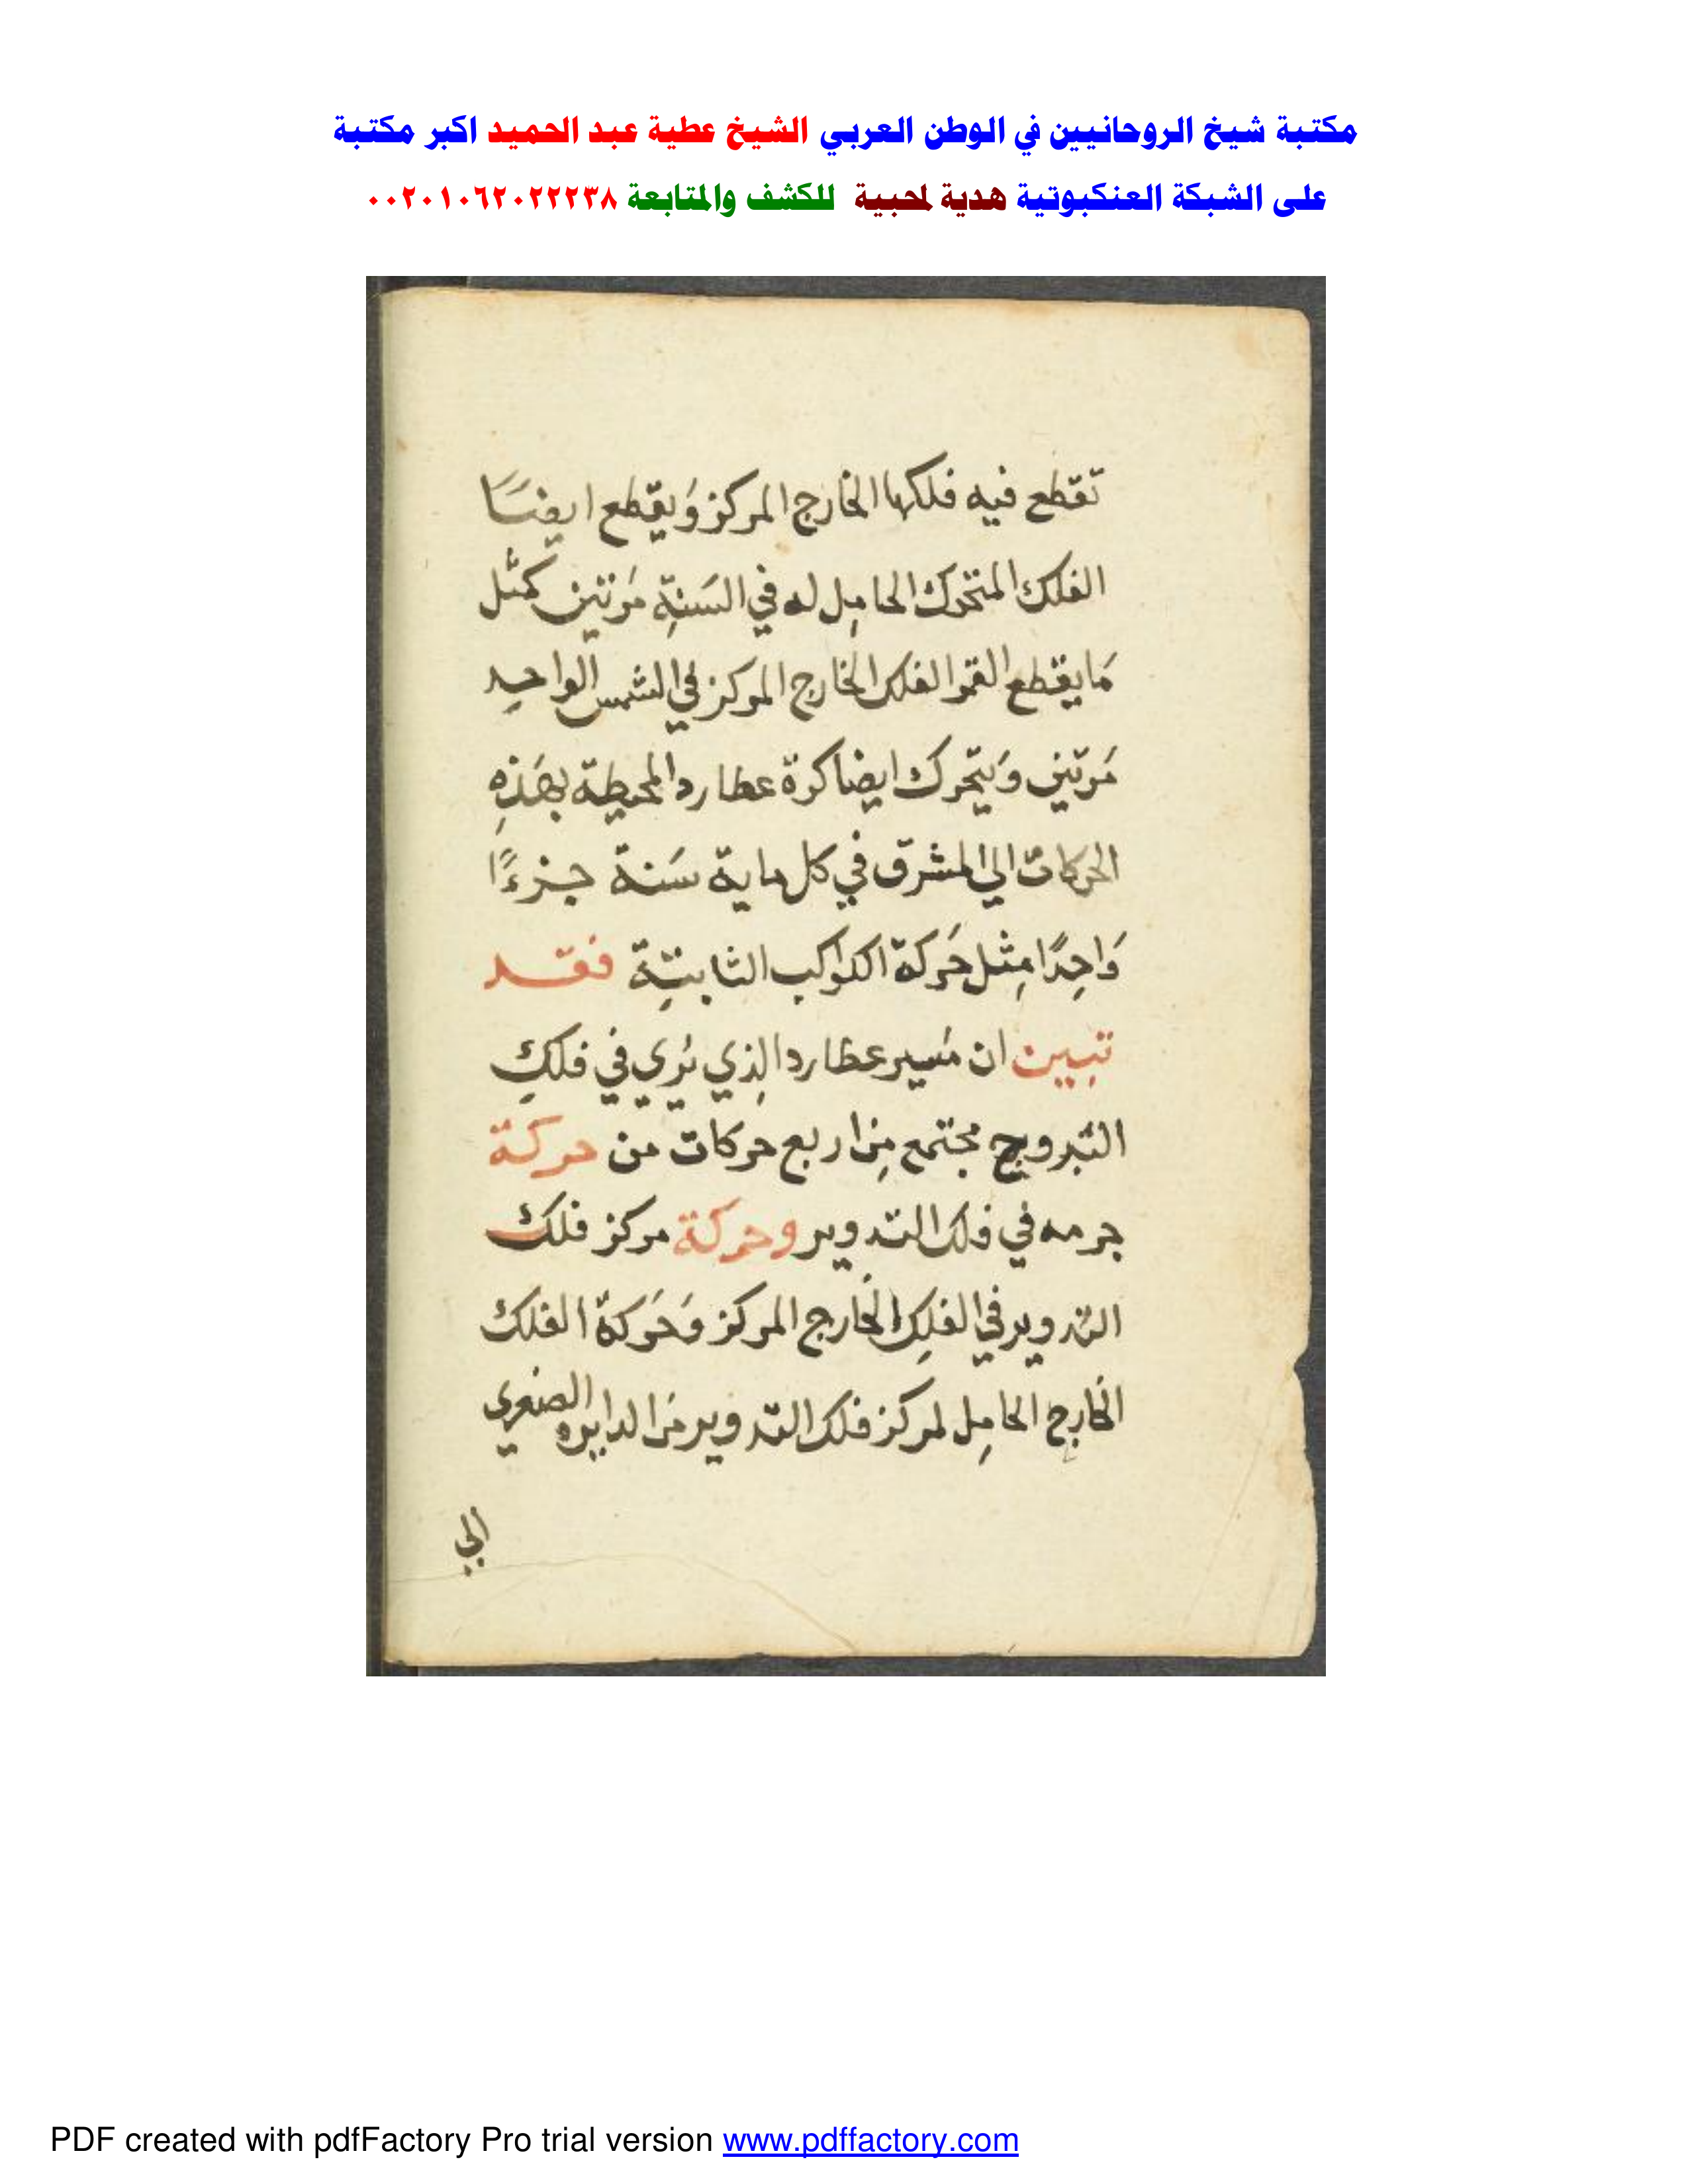 مكتبة شيخ الروحانيين في الوطن العربي الشيخ عطية عبد الحميد اكبر مكتبة
على الشبكة العنكبوتية هدية لمحبية للكشف والمتابعة ٠٠٢٠١٠٦٢٠٢٢٢٣٨
تقطع فيه فلكها الخارج المركز وَيقطع ايضًا
الفلك المتحرك الحامِل له في السَنةِ مَرتين كمثل
مَا يقطع القمر الفلك الخارج المركز في الشمس الواحِد
مَرتين وَيتحرك ايضا كرة عطارد المحيطة بهَذِهِ
الحركات الي المشرق في كل ماية سَنة جزءًا
وَاحِدًا مِثل حَركة الكواكب الثابتِة فقد
تبين ان مَسير عطارد الِذي يُري في فلكِ
البُروج مجتمع مِن اربع حركات من حركة
جرمه في فلك التدوير وحركة مركز فلك
التدوير في الفلِك الخَارج المركز وَحَركة الفلك
الخَارج الحامِل لمركز فلك التدوير مَن الدايره الصغري
الي
PDF created with pdfFactory Pro trial version www.pdffactory.com